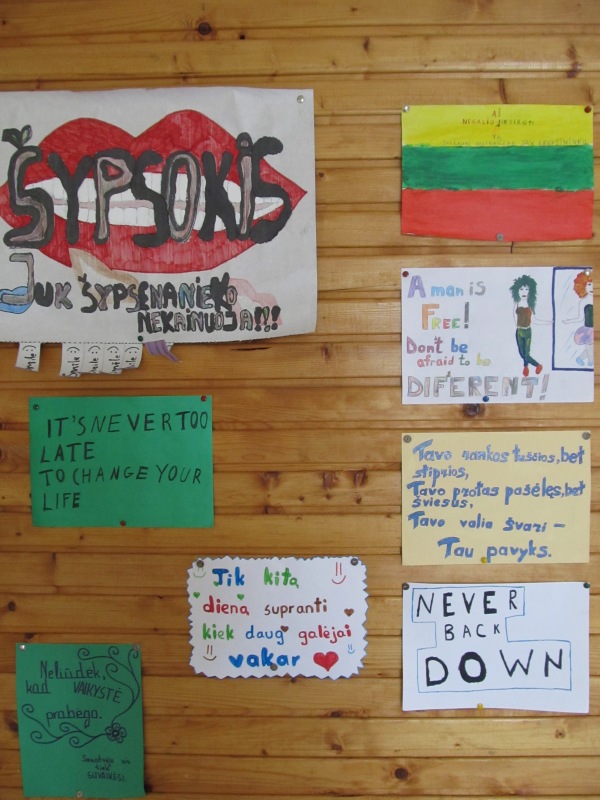 ŠYPSOKIS
JUK ŠYPSENA NIEKO
NEKAINUOJA!!!
smile :)
AŠ
A man is
FREE!
Don't be
afraid to be
DIFFERENT!
IT'S NEVER TOO
LATE
TO CHANGE YOUR
LIFE
Tavo rankos tuščios, bet
stiprios,
Tavo protas pašėlęs, bet
šviesus,
Tavo valia švari –
Tau pavyks.
Tik kitą
dieną supranti
kiek daug galėjai
vakar
NEVER
BACK
DOWN
Neliūdėk,
kad VAIKYSTĖ
prabėgo.